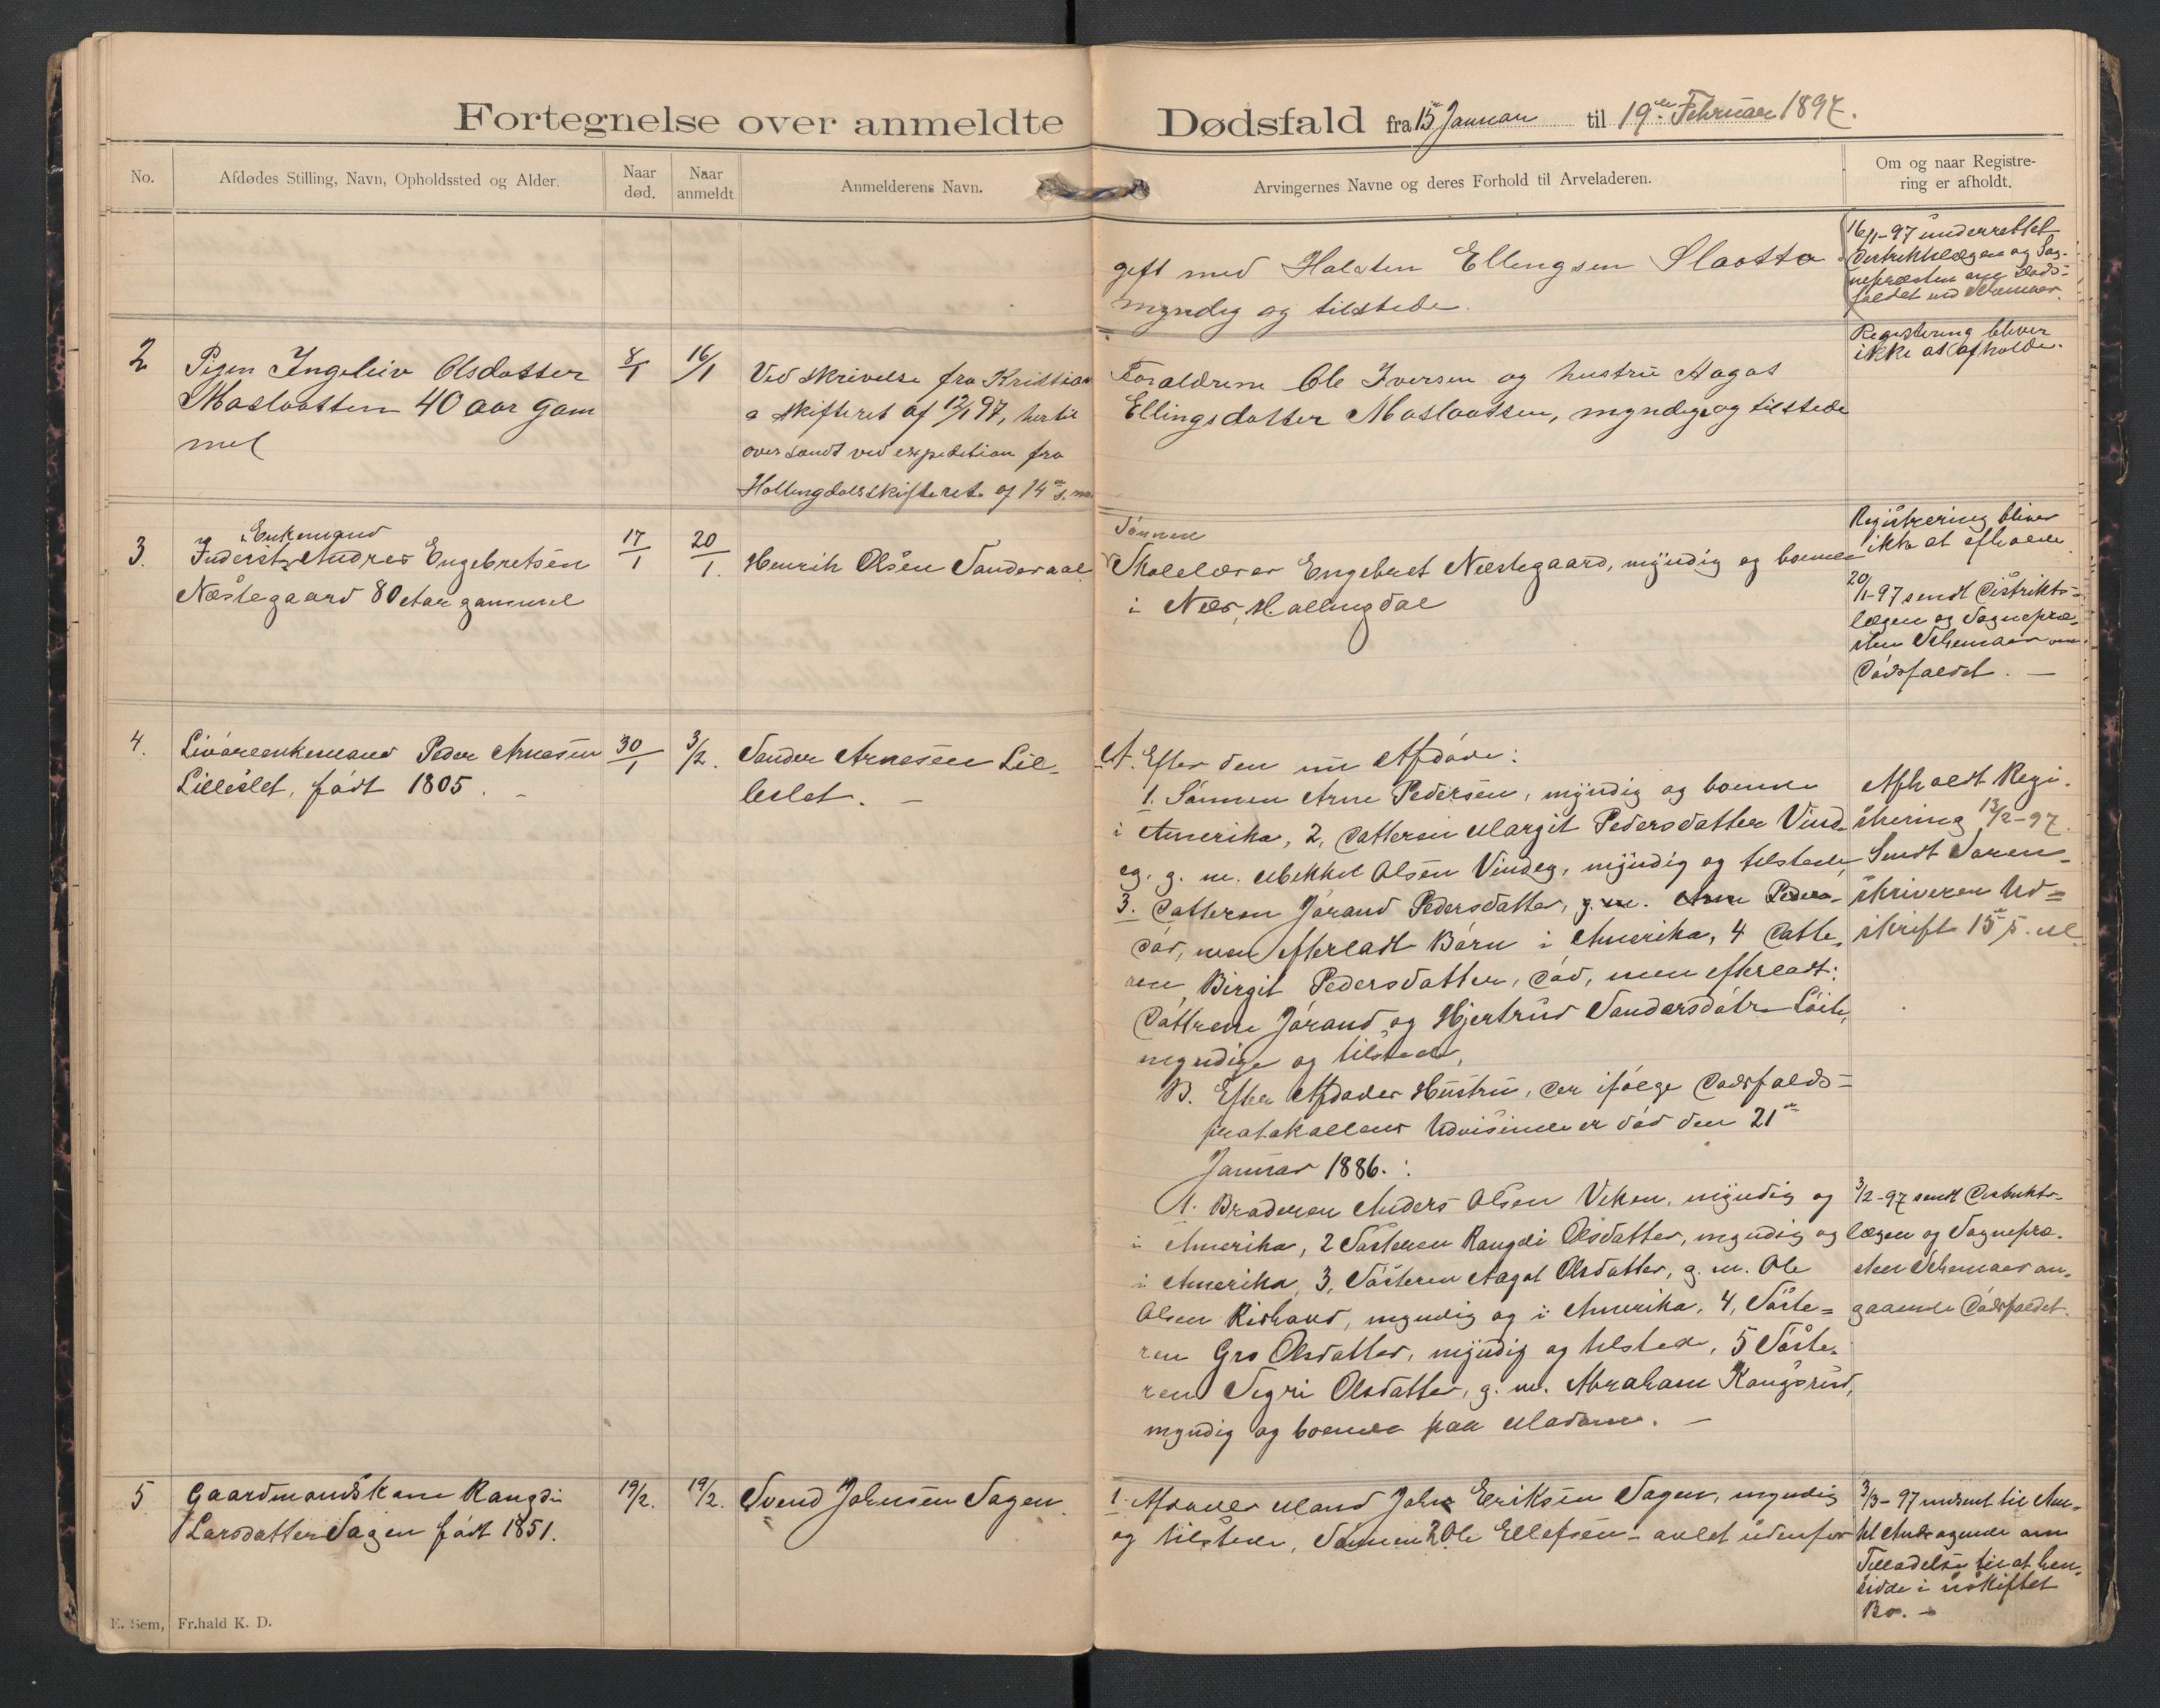 Fortegnelse over anmeldte Dødsfald fra 15de Januar til 19de Februar 1897.
No.
Afdødes Stilling, Navn, Opholdssted og Alder.
Naar død.
Naar anmeldt
Anmelderens Navn.
Arvingernes Navne og deres Forhold til Arveladeren.
Om og naar Registre-
ring er afholdt.
gift med Halsten Ellingsen Slaatto
myndig og tilstede.
16/1-97 underrettet
Distriktslægen og Sog-
nepræsten om Døds-
faldet ved Schemaer.
2
Pigen Ingeleiv Olsdatter
Maslaatten 40 aar gam
mel
8/1
16/1
Ved skrivelse fra Kristian
a skifteret af 12/1 97, hertil
oversandt ved expedition fra
Hallingdalsskifteret af 14de s. m.
Forældrene Ole Iversen og hustru Aagot
Ellingsdatter Maslaatten, myndige og tilstede
Registering bliver
ikke at afholde.
3.
Enkemand
Inderst Andres Engebretsen
Næstegaard 80 Aar gammel
17/1
20/1.
Henrik Olsen Sanderaal.
Sønnen
Skolelærer Engebret Næstegaard, myndig og boende
i Næs, Hallingdal
Registrering bliver
ikke at afholde.
20/1-97 sendt Distrikts-
lægen og Sognepræ-
sten Schemaer om
Dødsfaldet. —
4.
Livøreenkemand Peder Arnesen
Lilleslet, født 1805. -
30/1
3/2.
Sander Arnesen Lil-
leslet. -
A. Efter den nu Afdøde:
1. Sønnen Arne Pedersen, myndig og boende
i Amerika, 2, Datteren Margit Pedersdatter Vind-
eg. g. m. Mekkel Olsen Vindeg, myndig og tilstede,
3. Datteren Jørand Pedersdatter, g. m. Arne Peders-
død, men efterladt Børn i Amerika, 4 Datte-
ren Birgit Pedersdatter, død, men efterladt:
Døttrene Jørand og Hjertrud Sandersdøtre Löite,
myndige og tilstede,
B. Efter Afdødes Hustru, der ifølge Dødsfalds-
protokollens Udvisende er død den 21de
Januar 1886. :
1. Broderen Anders Olsen Veken, myndig og
i Amerika, 2 Søsteren Rangdi Olsdatter, myndig og
i Amerika, 3, Søsteren Aagot Olsdatter, g. m. Ole
Olsen Risland, myndig og i Amerika, 4, Søste-
ren Gro Olsdatter, myndig og tilstede, 5 Søste-
ren Segri Olsdatter, g. m. Abraham Kongsrud,
myndig og boende paa Modum. —
Afholdt Regi-
strering 13/2-97.
Sendt Soren-
skriveren Ud-
skrift 15de s. M.
3/2-97 sendt Distrikts-
lægen og Sognepræ-
sten Schemaer an-
gaaende Dødsfaldet.
5
Gaardmandskone Rangdi
Larsdatter Sagen født 1851.
19/2.
19/2.
Svend Johnsen Sagen.
1. Afdødes Mand John Eriksen Sagen, myndig
og tilstede, Sønnen 2 Ole Ellefsen - avlet udenfor
3/3-97 indsent til Am-
tet Andragende om
Tilladelse til at hen-
sidde i uskiftet
Bo. -
E. Sem, Fr.hald K. D.